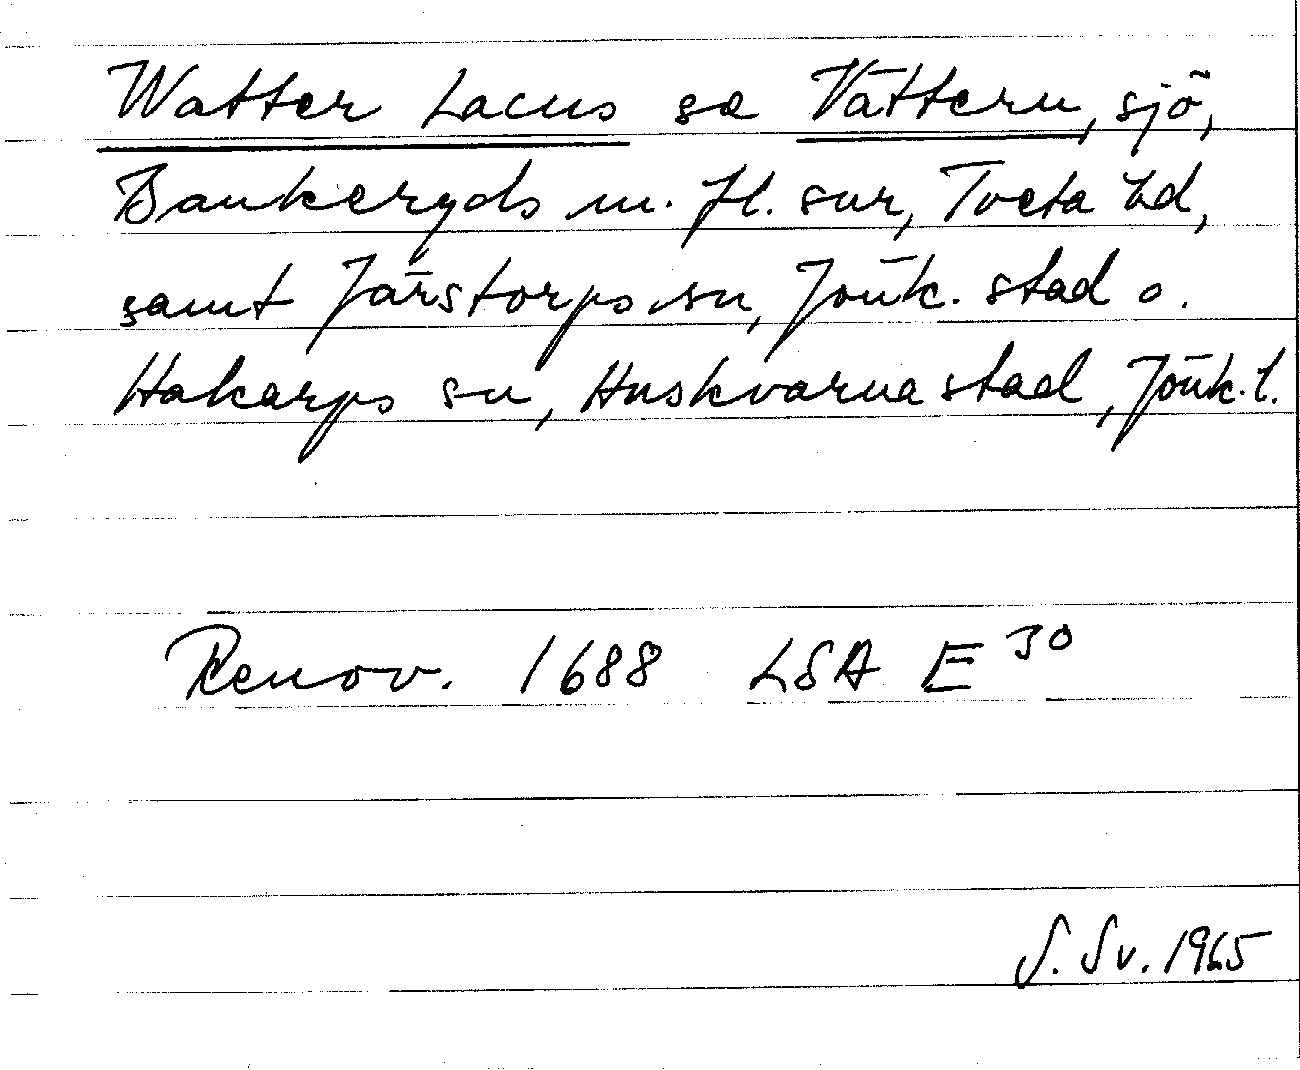 Watter Lacus sa Vättern, sjö,
Bankeryds m. fl. snr, Tveta hd,
samt Järstorps sn, Jönk. stad o.
Hakarps sn, Huskvarna stad, Jönk. l.
Renov. 1688 LSA E 30
S. Sv. 1965